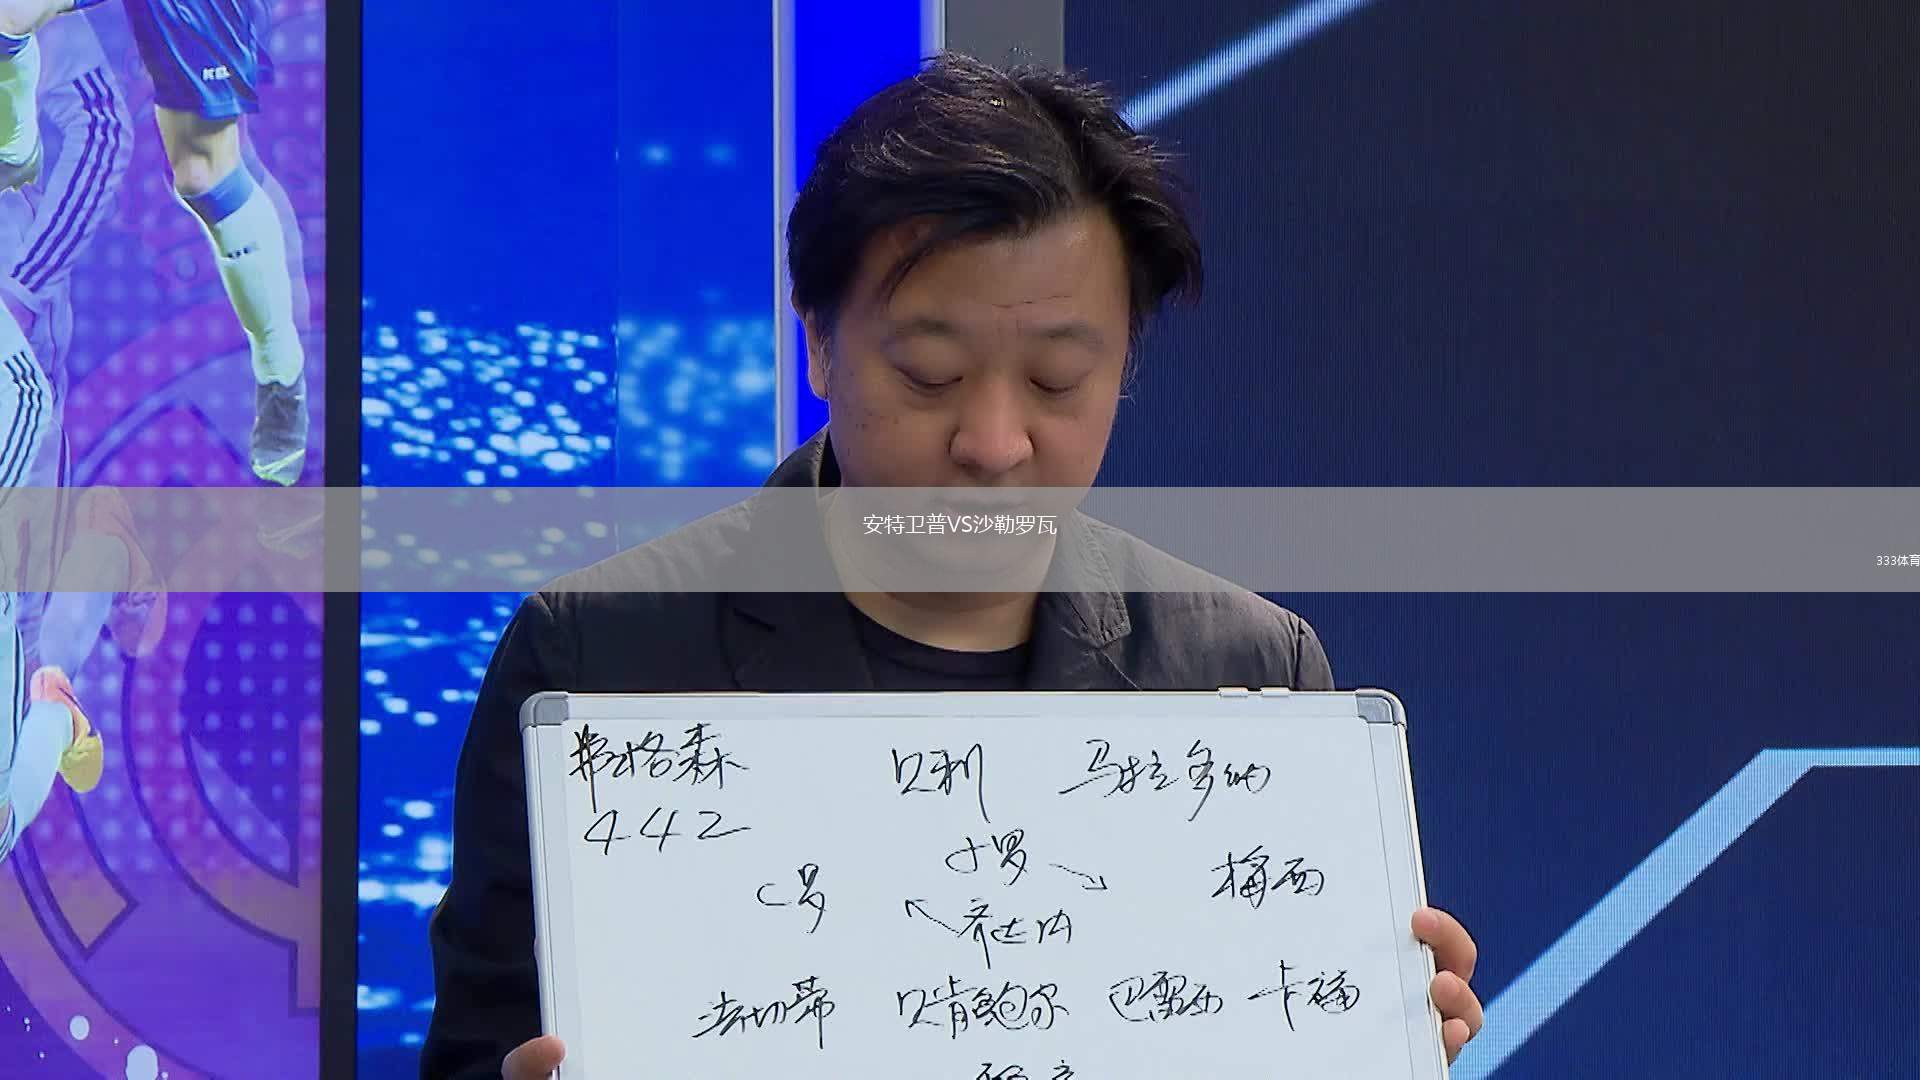 安特卫普VS沙勒罗瓦
333体育
弗格森 贝利 马拉多纳
442
小罗
C罗 梅西
齐达内
法切蒂 贝肯鲍尔 巴雷西 卡福